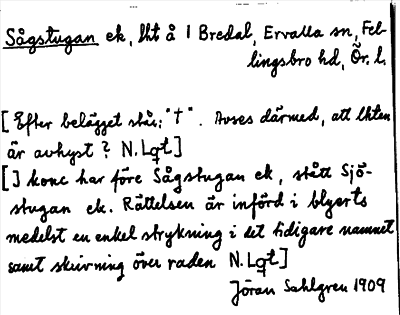 Sågstugan ek, lht å 1 Bredal, Ervalla sn, Fel-
lingsbro hd, Ör. l.
[Efter belägget står: "†". Avses därmed, att lhten
är avhyst? N. Lqt]
[] konc har före Sågstugan ek, stått Sjö-
stugan ek. Rättelsen är införd i blyerts
medelst en enkel strykning i det tidigare namnet
samt skrivning över raden N. Lqt]
Jöran Sahlgren 1909